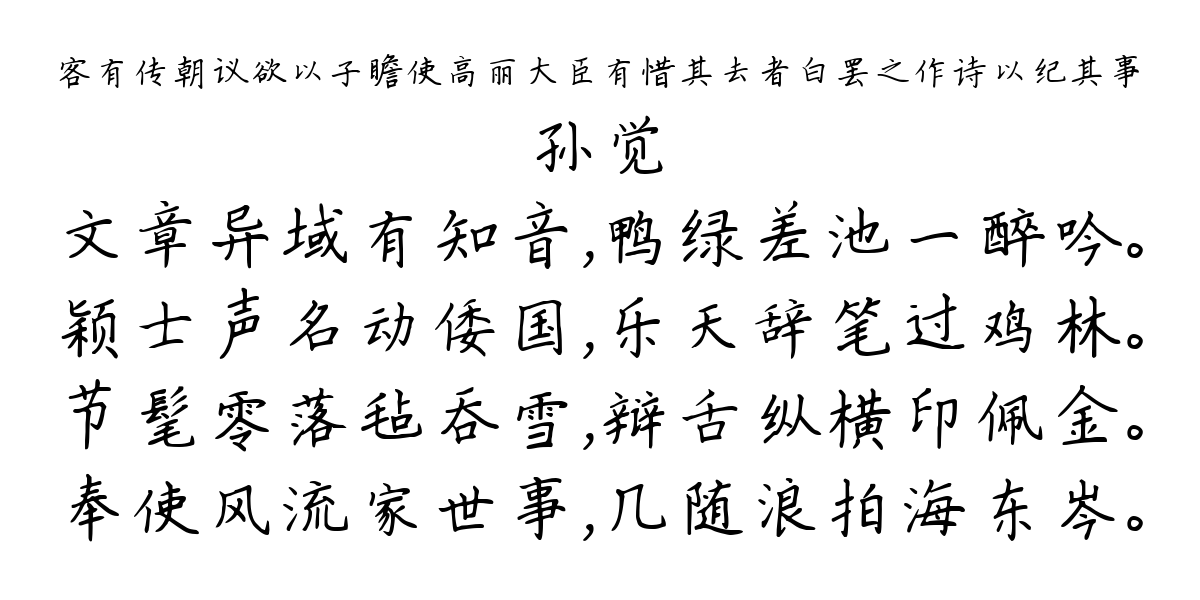 客有传朝议欲以子瞻使高丽大臣有惜其去者白罢之作诗以纪其事
孙觉
文章异域有知音,鸭绿差池一醉吟。
颖士声名动倭国,乐天辞笔过鸡林。
节髦零落毡吞雪,辩舌纵横印佩金。
奉使风流家世事,几随浪拍海东岑。